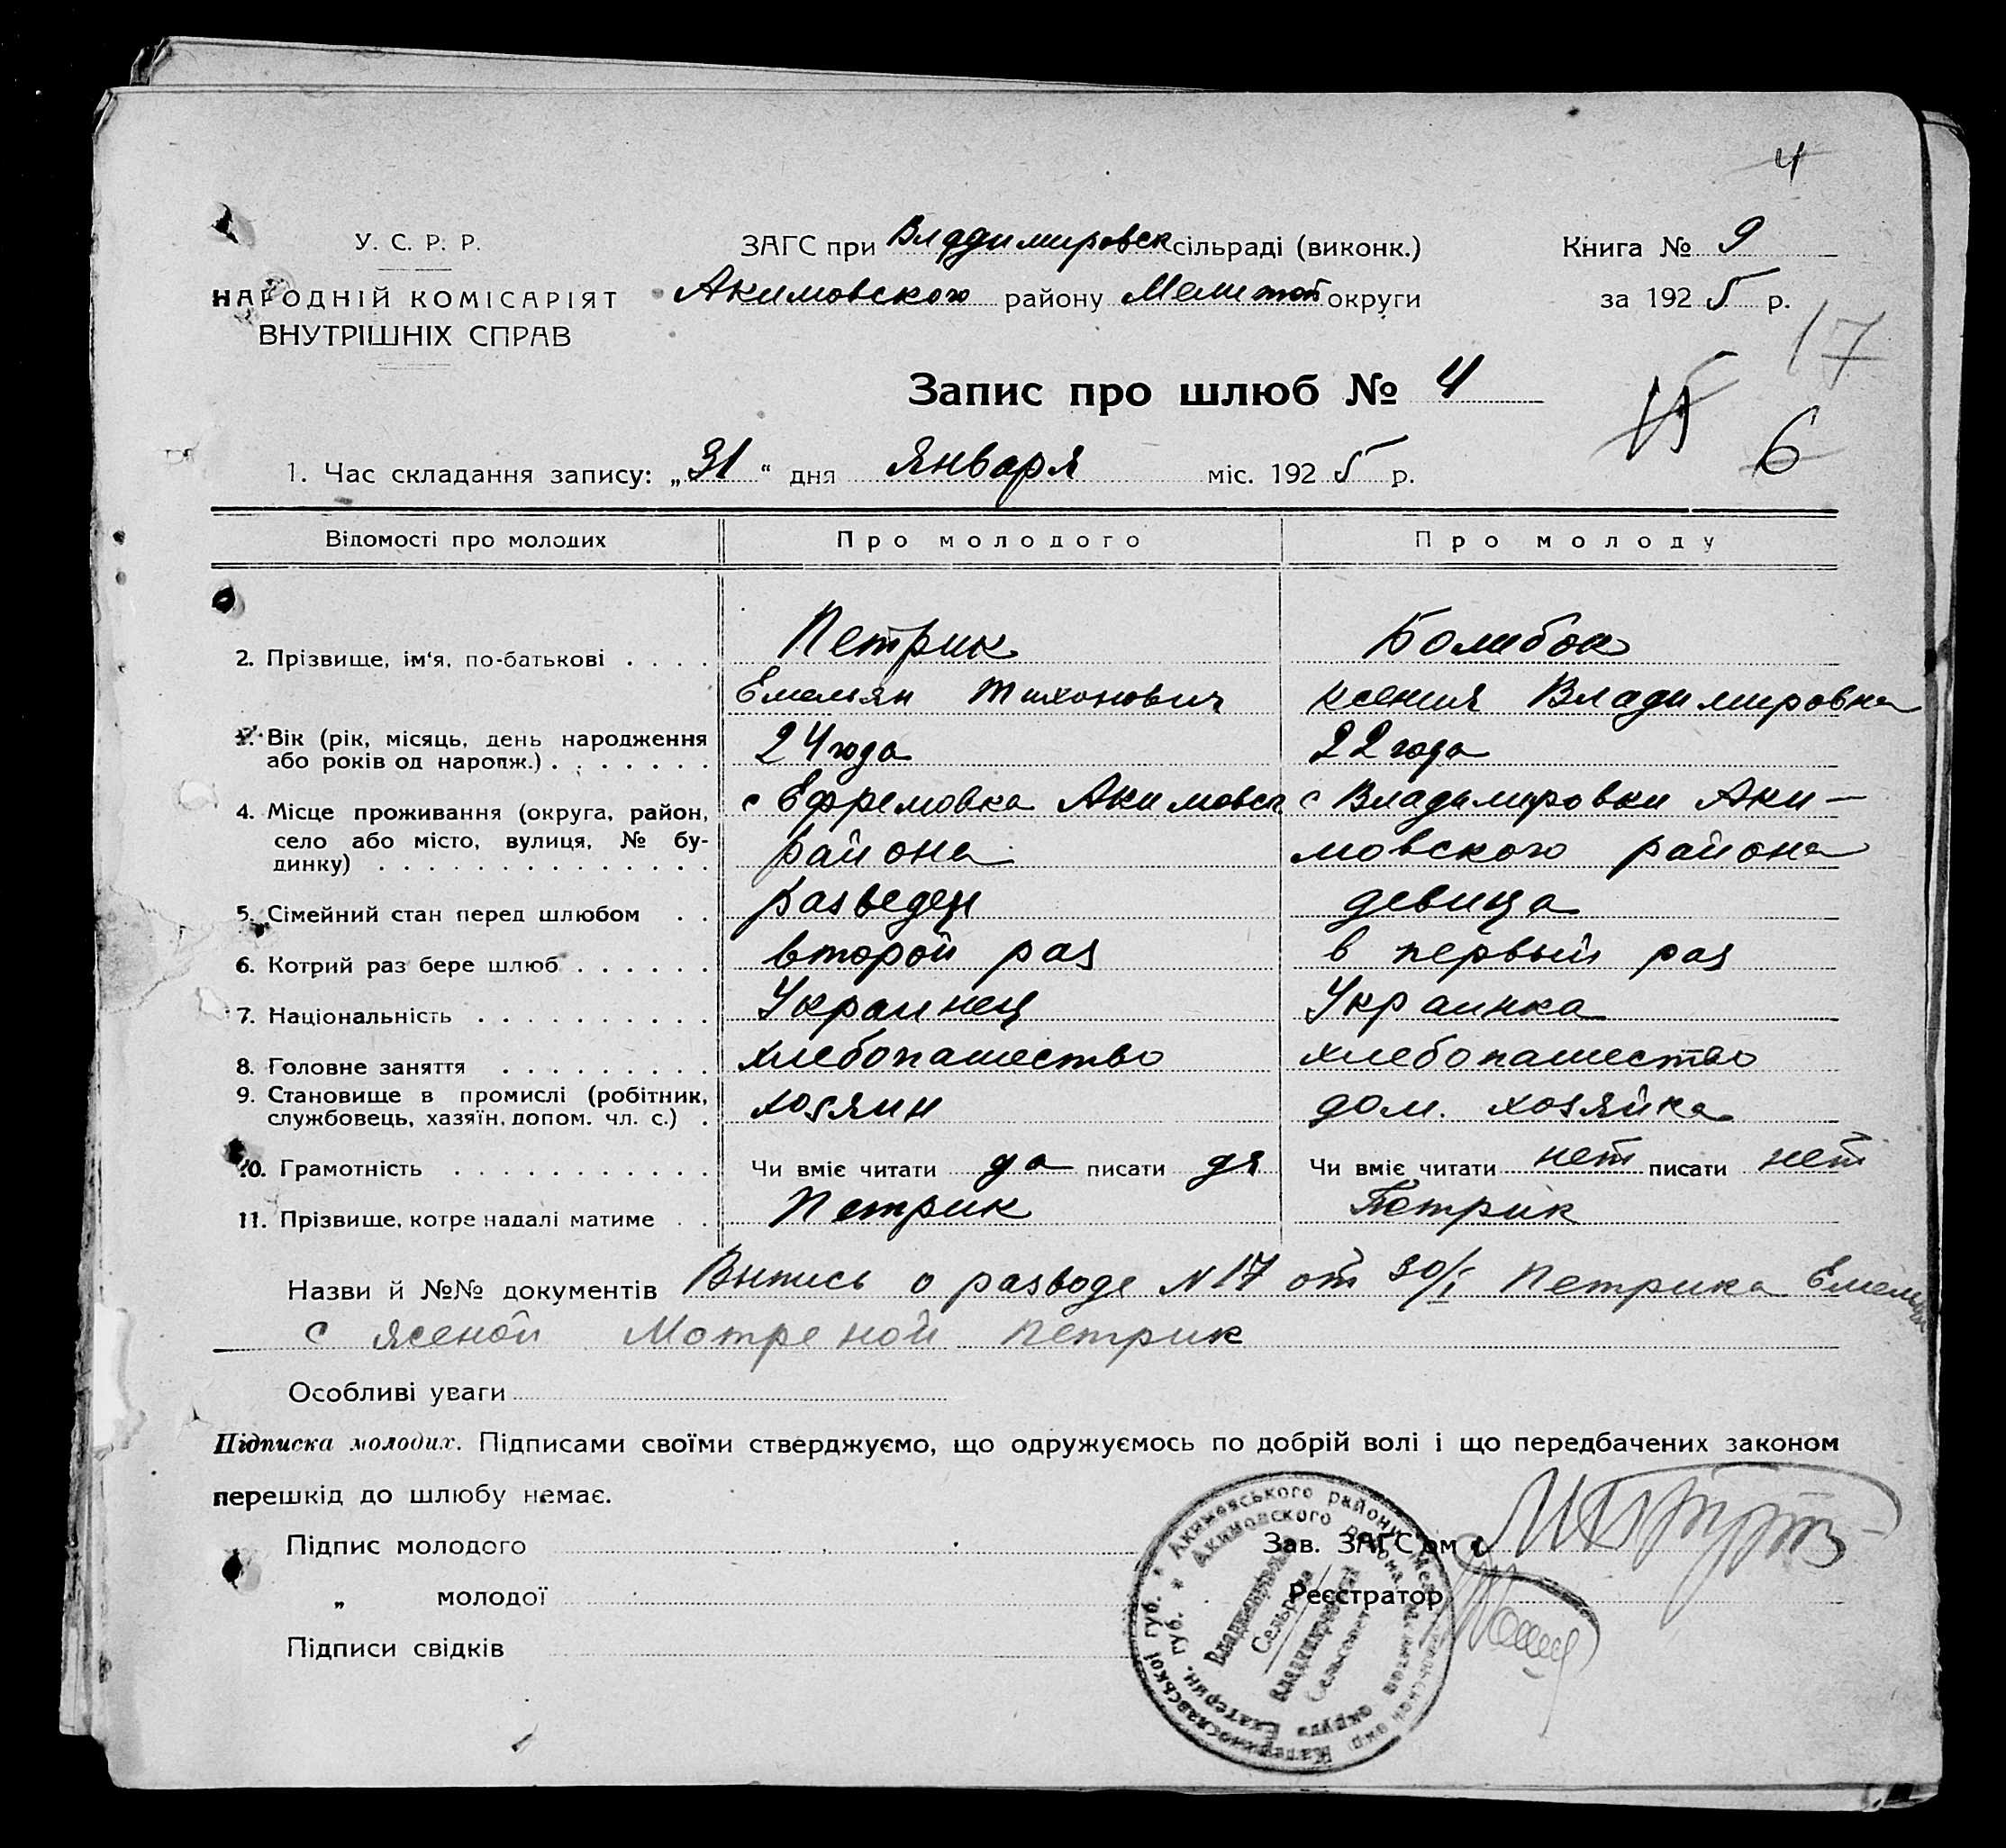 4
У. С. Р. Р.
НАРОДНІЙ КОМІСАРІЯТ
ВНУТРІШНІХ СПРАВ
ЗАГС при Владимировск сільраді (виконк.)
Акимовского району Мелитоп округи
Книга № 9
за 1925 р.
17
Запис про шлюб № 4
6
1. Час складання запису: „31“ дня Января міс. 1925 р.
Відомості про молодих Про молодого Про молоду
2. Прізвище, ім‘я, по-батькові . . . . Петрик Болибок
Емельян Тихонович Ксения Владимировна
3. Вік (рік, місяць, день народження 24 года 22 года
або років од нарoдж.) . . . . . . .
4. Місце проживання (округа, район, с Ефремовка Акимовск с Владимировки Аки-
село або місто, вулиця, № бу- района мовского района
динку) . . . . . . . . . . . . . .
5. Сімейний стан перед шлюбом . . разведен девица
6. Котрий раз бере шлюб . . . . . . второй раз в первый раз
7. Національність . . . . . . . . . . Украинец Украинка
8. Головне заняття . . . . . . . . . хлебопашество хлебопашество
9. Становище в промислі (робітник, хозяин дом. хозяйка
службовець, хазяїн, допом. чл. с.) .
10. Грамотність . . . . . . . . . . . Чи вміє читати да писати да Чи вміє читати нет писати нет
11. Прізвище, котре надалі матиме . . Петрик Петрик
Назви й №№ документів Выпись о разводе N 17 от 30/I Петрика Емельян
с Ясеной Мотреной Петрик
Особливі уваги
Підписка молодих. Підписами своїми стверджуємо, що одружуємось по добрій волі і що передбачених законом
перешкід до шлюбу немає.
Підпис молодого
Зав. ЗАГС'ом
„ молодої
Реєстратор
Підписи свідків
Акимовського району Мелітопольської окр. Катеринославської губ.
Акимовского района округа Екатерин. губ.
Сельрада
Владимировский
Сельсовет